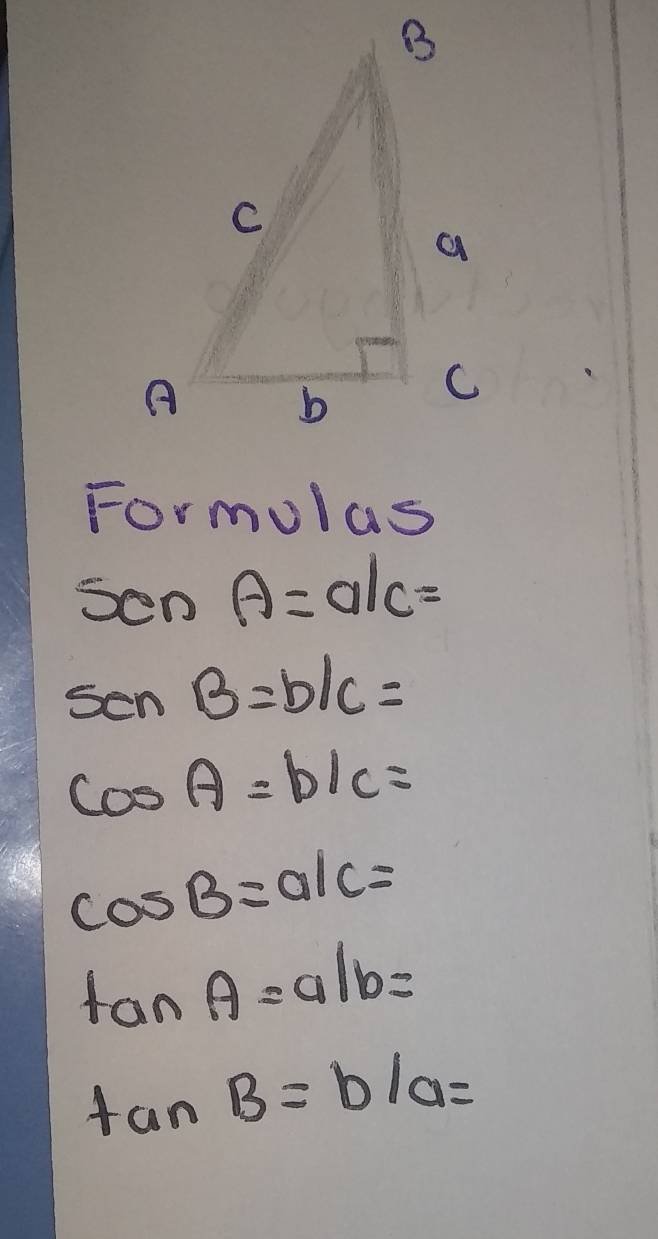 B
c
a
A
b
C
Formulas
Sen A=a/c=
sen B=b/c=
Cos A=b/c=
cos B=a/c=
tan A=a/b=
tan B=b/a=